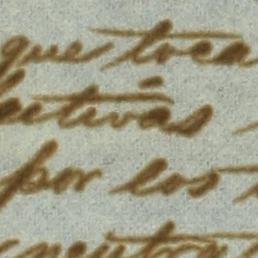 que toca
ectivas
por los